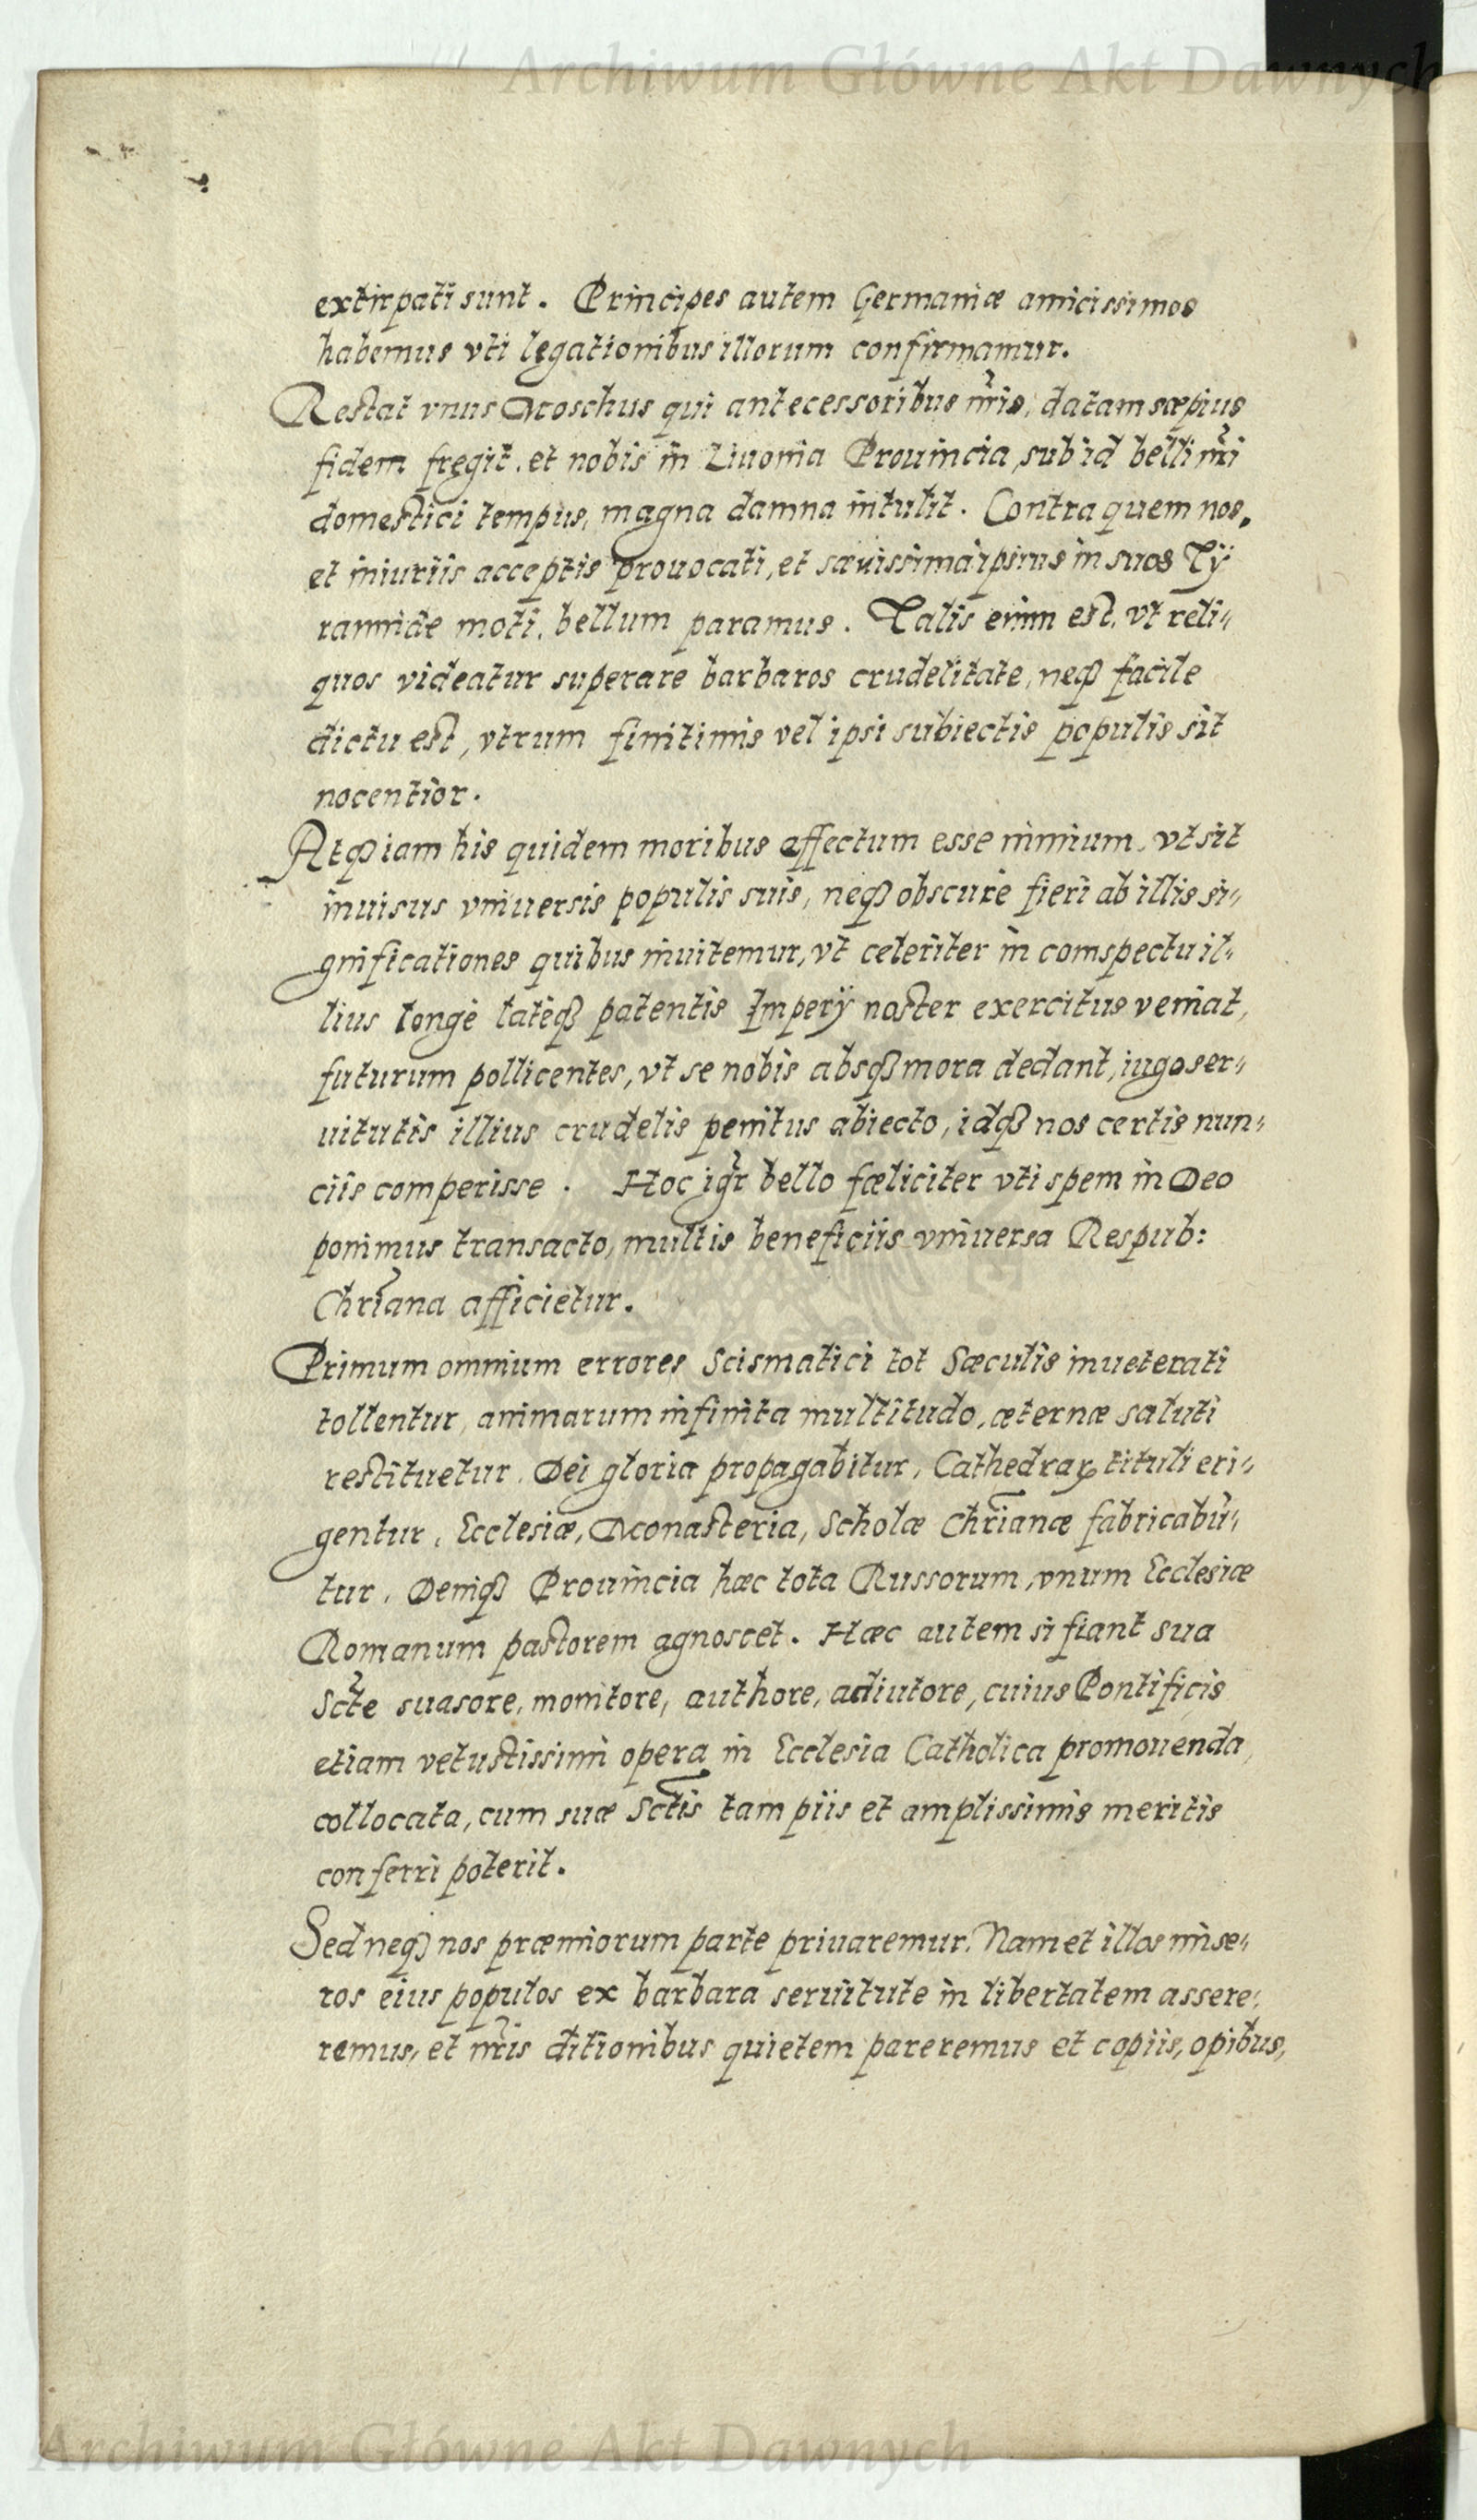 Archiwum Główne Akt Dawnych
extirpati sunt. Principes autem Germaniæ amicissimos
habemus vti legationibus illorum confirmamur.
Restat vnus Moschus qui antecessoribus nr̃is, datam sæpius
fidem fregit, et nobis in Liuonia Prouincia, sub id belli nr̃i
domestici tempus, magna damna intulit. Contra quem nos,
et iniuriis acceptis prouocati, et sæuissima ipsius in suos Tÿ
rannide moti, bellum paramus. Talis enim est, vt reli„
quos videatur superare barbaros crudelitate, neqꝫ facile
dictu est, vtrum finitimis vel ipsi subiectis populis sit
nocentior.
Atqꝫ iam his quidem moribus affectum esse nimium, vt sit
inuisus vniuersis populis suis, neqꝫ obscure fieri ab illis si„
gnificationes quibus inuitemur, vt celeriter in comspectu il„
lius longè latèqꝫ patentis Imperÿ noster exercitus veniat,
futurum pollicentes, vt se nobis absqꝫ mora dedant, iugo ser„
uitutis illius crudelis penitus abiecto, idqꝫ nos certis nun„
ciis comperisse. Hoc igr̃ bello fæliciter vti spem in Deo
ponimus transacto, multis beneficiis vniuersa Respub:
Chr̃iana afficietur.
Primum omnium errores Scismatici tot Sæculis inueterati
tollentur, animarum infinita multitudo, æternæ saluti
restituetur, Dei gloria propagabitur, Cathedraꝝ tituli eri„
gentur, Ecclesiæ, Monasteria, Scholæ Chr̃ianæ fabricabũ„
tur, Deniqꝫ Prouincia hæc tota Russorum, vnum Ecclesiæ
Romanum pastorem agnoscet. Hæc autem si fiant sua
Sct̃e suasore, monitore, authore, adiutore, cuius Pontificis
etiam vetustissimi opera in Ecclesia Catholica promouenda,
collocata, cum suæ Sct̃is tam piis et amplissimis meritis
conferri poterit.
Sed neqꝫ nos præmiorum parte priuaremur. Nam et illos mise„
ros eius populos ex barbara seruitute in libertatem assere„
remus, et nr̃is ditionibus quietem pareremus et copiis, opibus,
Archiwum Główne Akt Dawnych